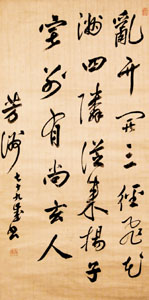 亂竹開三徑飛花
滿四隣從来揚子
宅別有尚玄人
芳洲
七十九